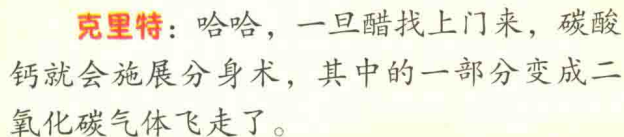 克里特：哈哈，一旦醋找上门来，碳酸
钙就会施展分身术，其中的一部分变成二
氧化碳气体飞走了。